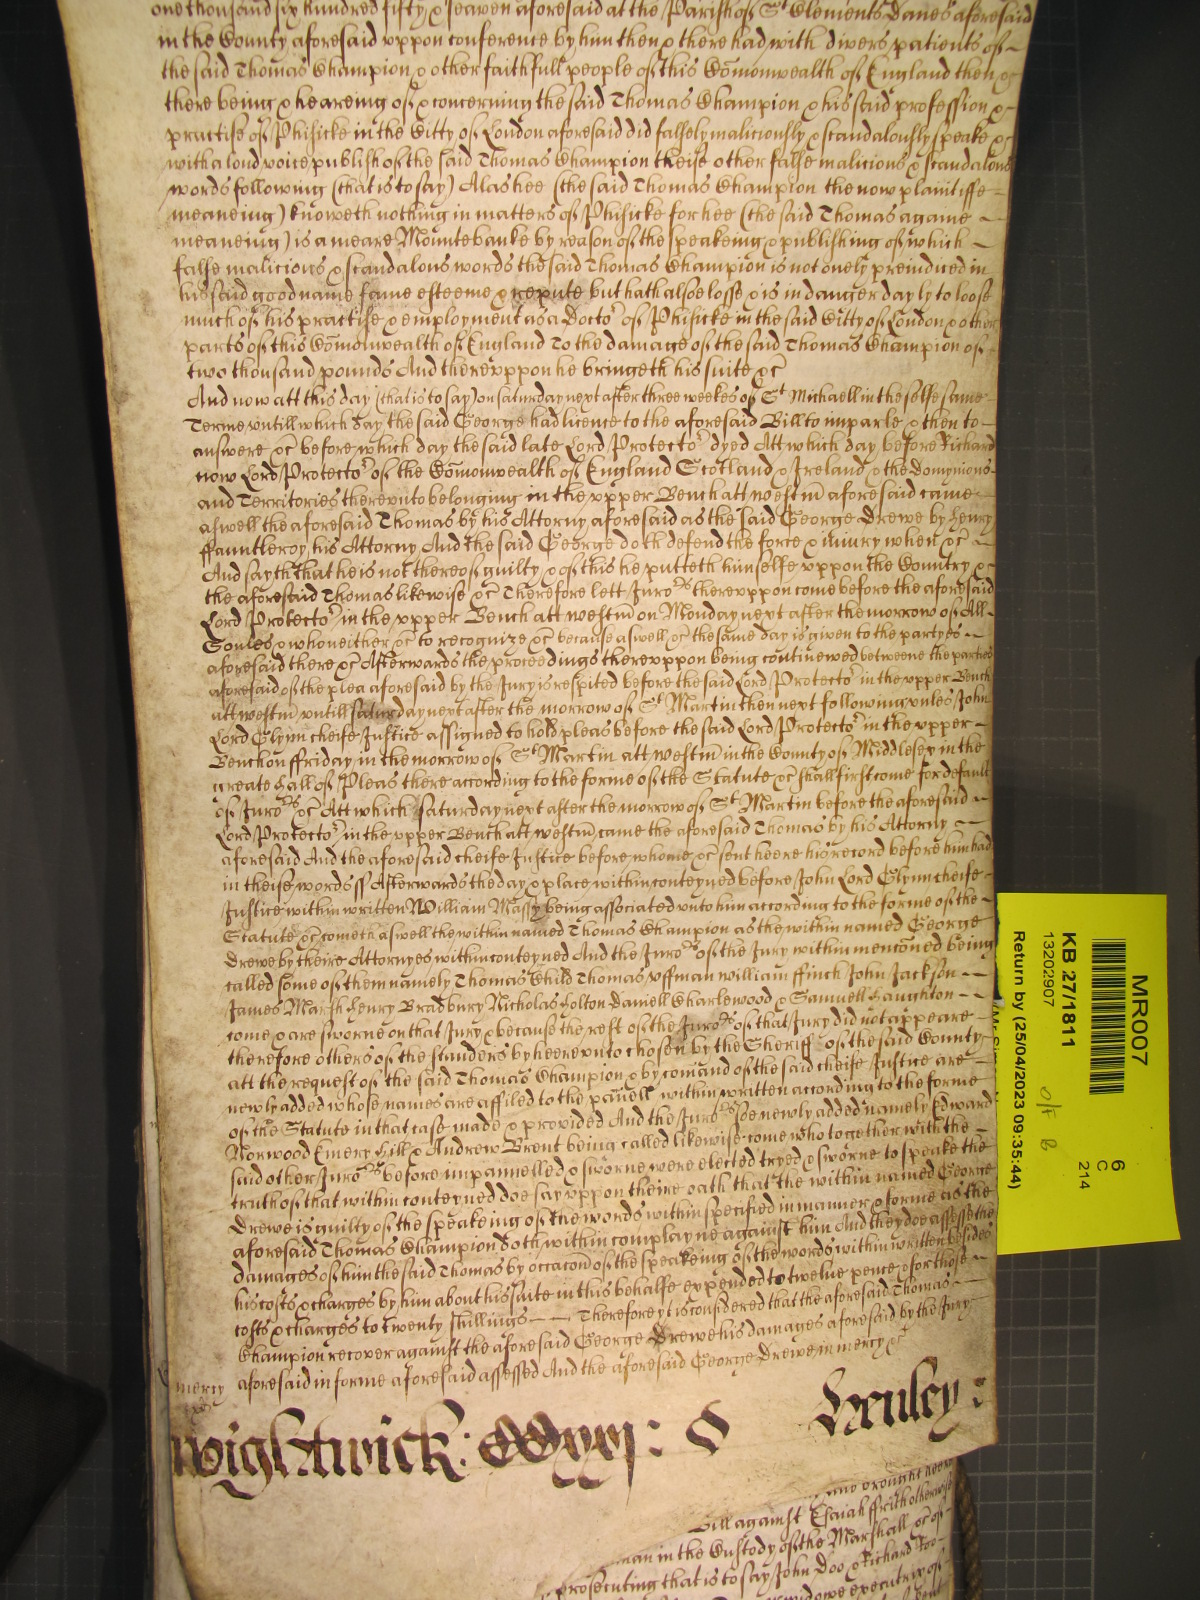 one thousand six hundred fifty & seaven aforesaid at the Parish of St Clements Danes aforesaid
in the County aforesaid vppon conference by him then & there had with divers patients of
the said Thomas Champion & other faithfull people of this Com̄onwealth of England then &
there being & heareing of & concerning the said Thomas Champion & his said profession &
practise of Phisicke in the Citty of London aforesaid did falsely maliciously & scandalously speake &
with a loud voice publish of the said Thomas Champion theise other false malicious & scandalous
words following (that is to say) Alas hee (the said Thomas Champion the now plaintiffe
meaneing) knoweth nothing in matters of Phisicke for hee (the said Thomas againe
meaneing) is a meare Mountebanke by reason of the speakeing & publishing of which
false malicious & scandalous words the said Thomas Champion is not onely preiudiced in
his said good name fame esteeme & repute but hath alsoe losse & is in danger dayly to loose
much of his practise & employment as a Doctor of Phisicke in the said Citty of London & other
parts of this Com̄onwealth of England To the damage of the said Thomas Champion of
two thousand pounds And therevppon he bringeth his suite &c
And now att this day (that is to say) on saturday next after three weekes of St Michaell in the selfe same
Terme vntill which day the said George had licence to the aforesaid Bill to imparle & then to
answere &c before which day the said late Lord Protector dyed Att which day before Richard
now Lord Protector of the Com̄onwealth of England Scotland & Ireland & the Dominions
and Territories therevnto belonging in the vpper Bench att Westm̄ aforesaid came
aswell the aforesaid Thomas by his Attorny aforesaid as the said George Drewe by Henry
ffauntleroy his Attorny And the said George doth defend the force & iniury when &c
And sayth that he is not thereof guilty & of this he putteth himselfe vppon the Country &
the aforesaid Thomas likewise &c Therefore lett Jurors therevppon come before the aforesaid
Lord Protector in the vpper Bench att Westm̄ on Monday next after the morrow of All
Soules & who neither &c to recognize &c because aswell &c the same day is given to the partyes
aforesaid there &c Afterwards the proceedings therevppon being continewed betweene the parties
aforesaid of the plea aforesaid by the Jury is respited before the said Lord Protector in the vpper Bench
att Westm̄ vntill saturday next after the morrow of St Martin then next following vnles John
Lord Glynn cheife Justice assigned to hold pleas before the said Lord Protector in the vpper
Bench on ffriday in the morrow of St Martin att Westm̄ in the County of Middlesex in the
greate Hall of Pleas there according to the forme of the Statute &c shall first come for default
of Jurors &c Att which saturday next after the morrow of St Martin before the aforesaid
Lord Protector in the vpper Bench att Westm̄ came the aforesaid Thomas by his Attorny
aforesaid And the aforesaid cheife Justice before whome &c sent heere his record before him had
in theise words ss Afterwards the day & place within conteyned before John Lord Glynn cheife
Justice within written William Massy being associated vnto him according to the forme of the
Statute &c cometh aswell the within named Thomas Champion as the within named George
Drewe by theire Attornyes within conteyned And the Jurors of the Jury within menc̄oned being
called some of them namely Thomas Child Thomas vffman William ffinch John Jackson
James Marsh Henry Bradbury Nicholas Holton Daniell Charlewood & Samuell Haughton
come & are sworne on that Jury & because the rest of the Jurors of that Jury did not appeare
therefore others of the standers by heerevnto chosen by the Sheriff of the said County
att the request of the said Thomas Champion & by com̄and of the said cheife Justice are
newly added whose names are affiled to the panell within written according to the forme
of the Statute in that case made & provided And the Jurors soe newly added namely Edward
Norwood Emery Hill & Andrew Brent being called likewise come who together with the
said other Jurors before impannelled & sworne were elected tryed & sworne to speake the
truth of that within conteyned doe say vppon theire oath that the within named George
Drewe is guilty of the speakeing of the words within specified in manner & forme as the
aforesaid Thomas Champion doth within complayne against him And they doe assesse the
damages of him the said Thomas by occac̄on of the speakeing of the words within written besides
his costs & charges by him about his suite in this behalfe expended to twelve pence & for those
costs & charges to twenty shillings Therefore yt is considered that the aforesaid Thomas
Champion recover against the aforesaid George Drewe his damages aforesaid by the Jury
aforesaid in forme aforesaid assessed And the aforesaid George Drewe in mercy &c
mercy
Wightwick: CCxxj: S Henley:
and brought heere
Bill against Esaiah ffrith otherwise
man in the Custody of the Marshall &c of
prosecuting that is to say John Doo & Richard Roo
widowe executrix of
MR007
KB 27/1811
13202907
Return by (25/04/2023 09:35:44)
6
C
214
o/t B